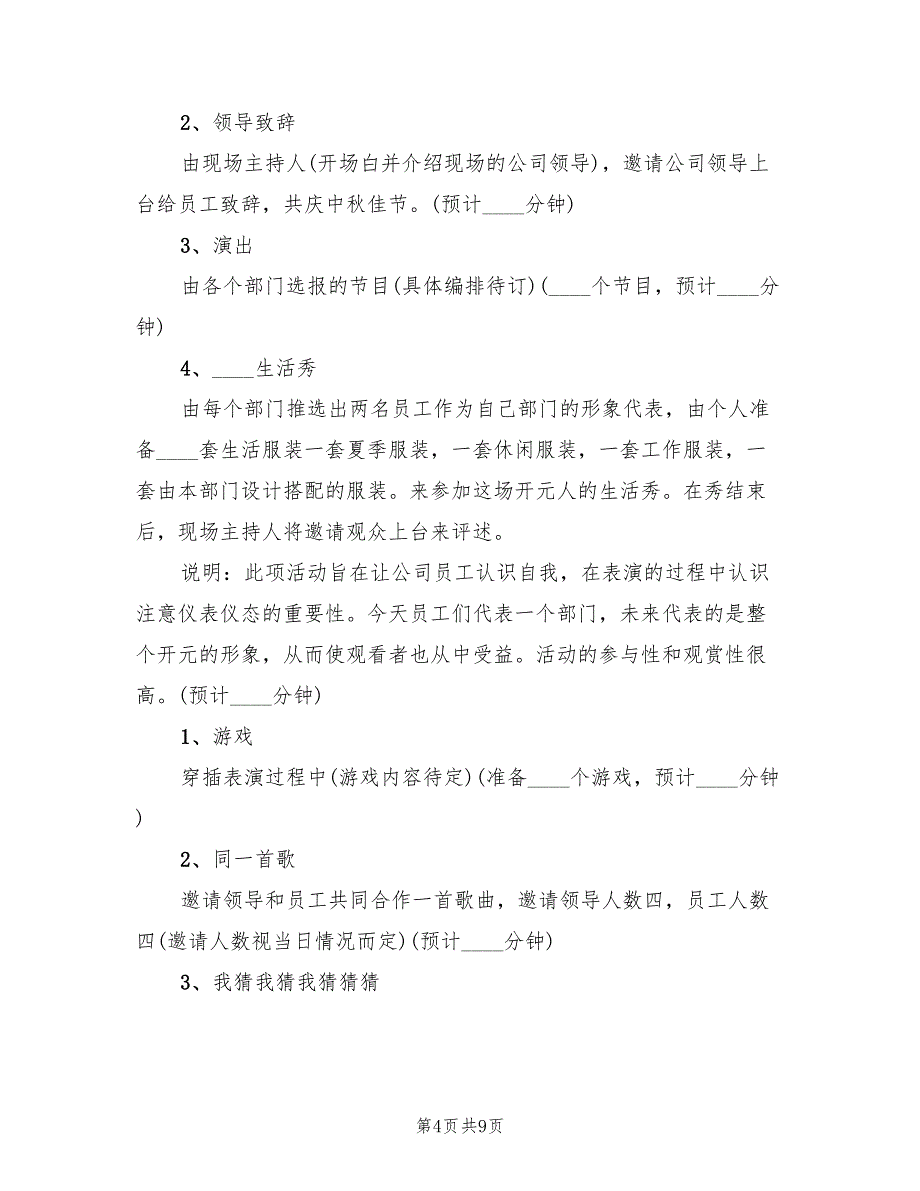 2、领导致辞
由现场主持人(开场白并介绍现场的公司领导)，邀请公司领导上
台给员工致辞，共庆中秋佳节。(预计____分钟)
3、演出
由各个部门选报的节目(具体编排待订)(____个节目，预计____分
钟)
4、____生活秀
由每个部门推选出两名员工作为自己部门的形象代表，由个人准
备____套生活服装一套夏季服装，一套休闲服装，一套工作服装，一
套由本部门设计搭配的服装。来参加这场开元人的生活秀。在秀结束
后，现场主持人将邀请观众上台来评述。
说明：此项活动旨在让公司员工认识自我，在表演的过程中认识
注意仪表仪态的重要性。今天员工们代表一个部门，未来代表的是整
个开元的形象，从而使观看者也从中受益。活动的参与性和观赏性很
高。(预计____分钟)
1、游戏
穿插表演过程中(游戏内容待定)(准备____个游戏，预计____分钟
)
2、同一首歌
邀请领导和员工共同合作一首歌曲，邀请领导人数四，员工人数
四(邀请人数视当日情况而定)(预计____分钟)
3、我猜我猜我猜猜猜
第4页共9页